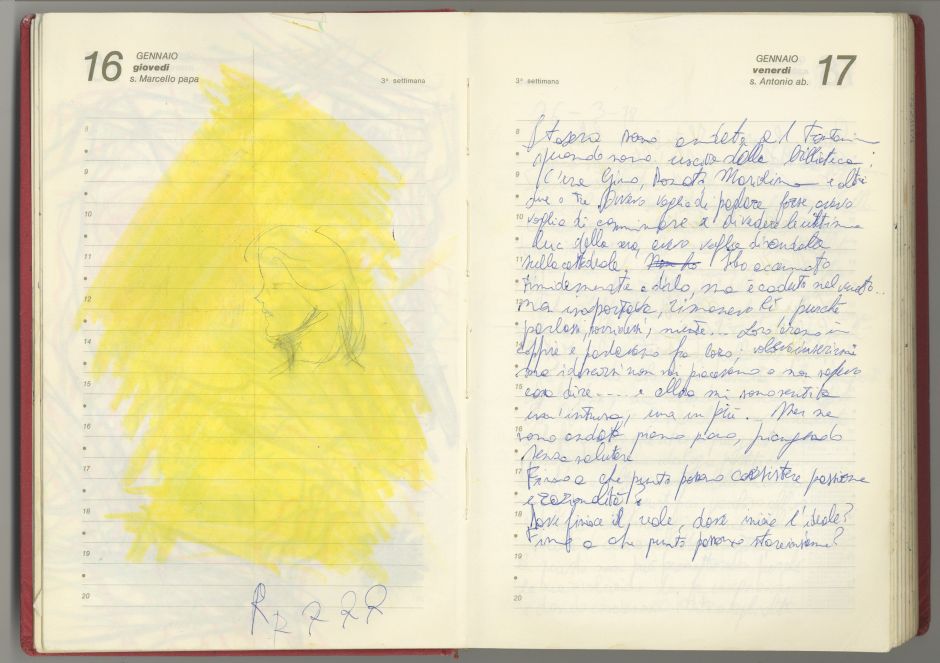 16
GENNAIO
giovedì
s. Marcello papa
3ª settimana
8
9
10
11
12
13
14
15
16
17
18
19
20
R R R R R
3ª settimana
GENNAIO
venerdì
s. Antonio ab.
17
Stasera sono andata al
quando sono uscita dalla biblioteca;
c'era Gino, Donato, e altri
due o tre. Avevo voglia di parlare forse, avevo
voglia di camminare e dividere le ultime
luci della sera, avevo voglia di
sulla cattedrale. Non ho L'ho accennato
timidamente a dirlo, ma è caduto nel vuoto...
ma importava, rimanevo lì, purché
parlassi, sorridessi, niente... Loro erano in
coppie e parlavano fra loro; volevo inserirmi
ma i discorsi non mi piacevano o non sapevo
cosa dire.... e allora mi sono sentita
un'intrusa, una in più. Me ne
sono andata piano piano, piangendo
senza salutare
Fino a che punto possono coesistere passione
e razionalità?
Dove finisce il reale, dove inizia l'ideale?
Fino a che punto possono stare insieme?
8
9
10
11
12
13
14
15
16
17
18
19
20